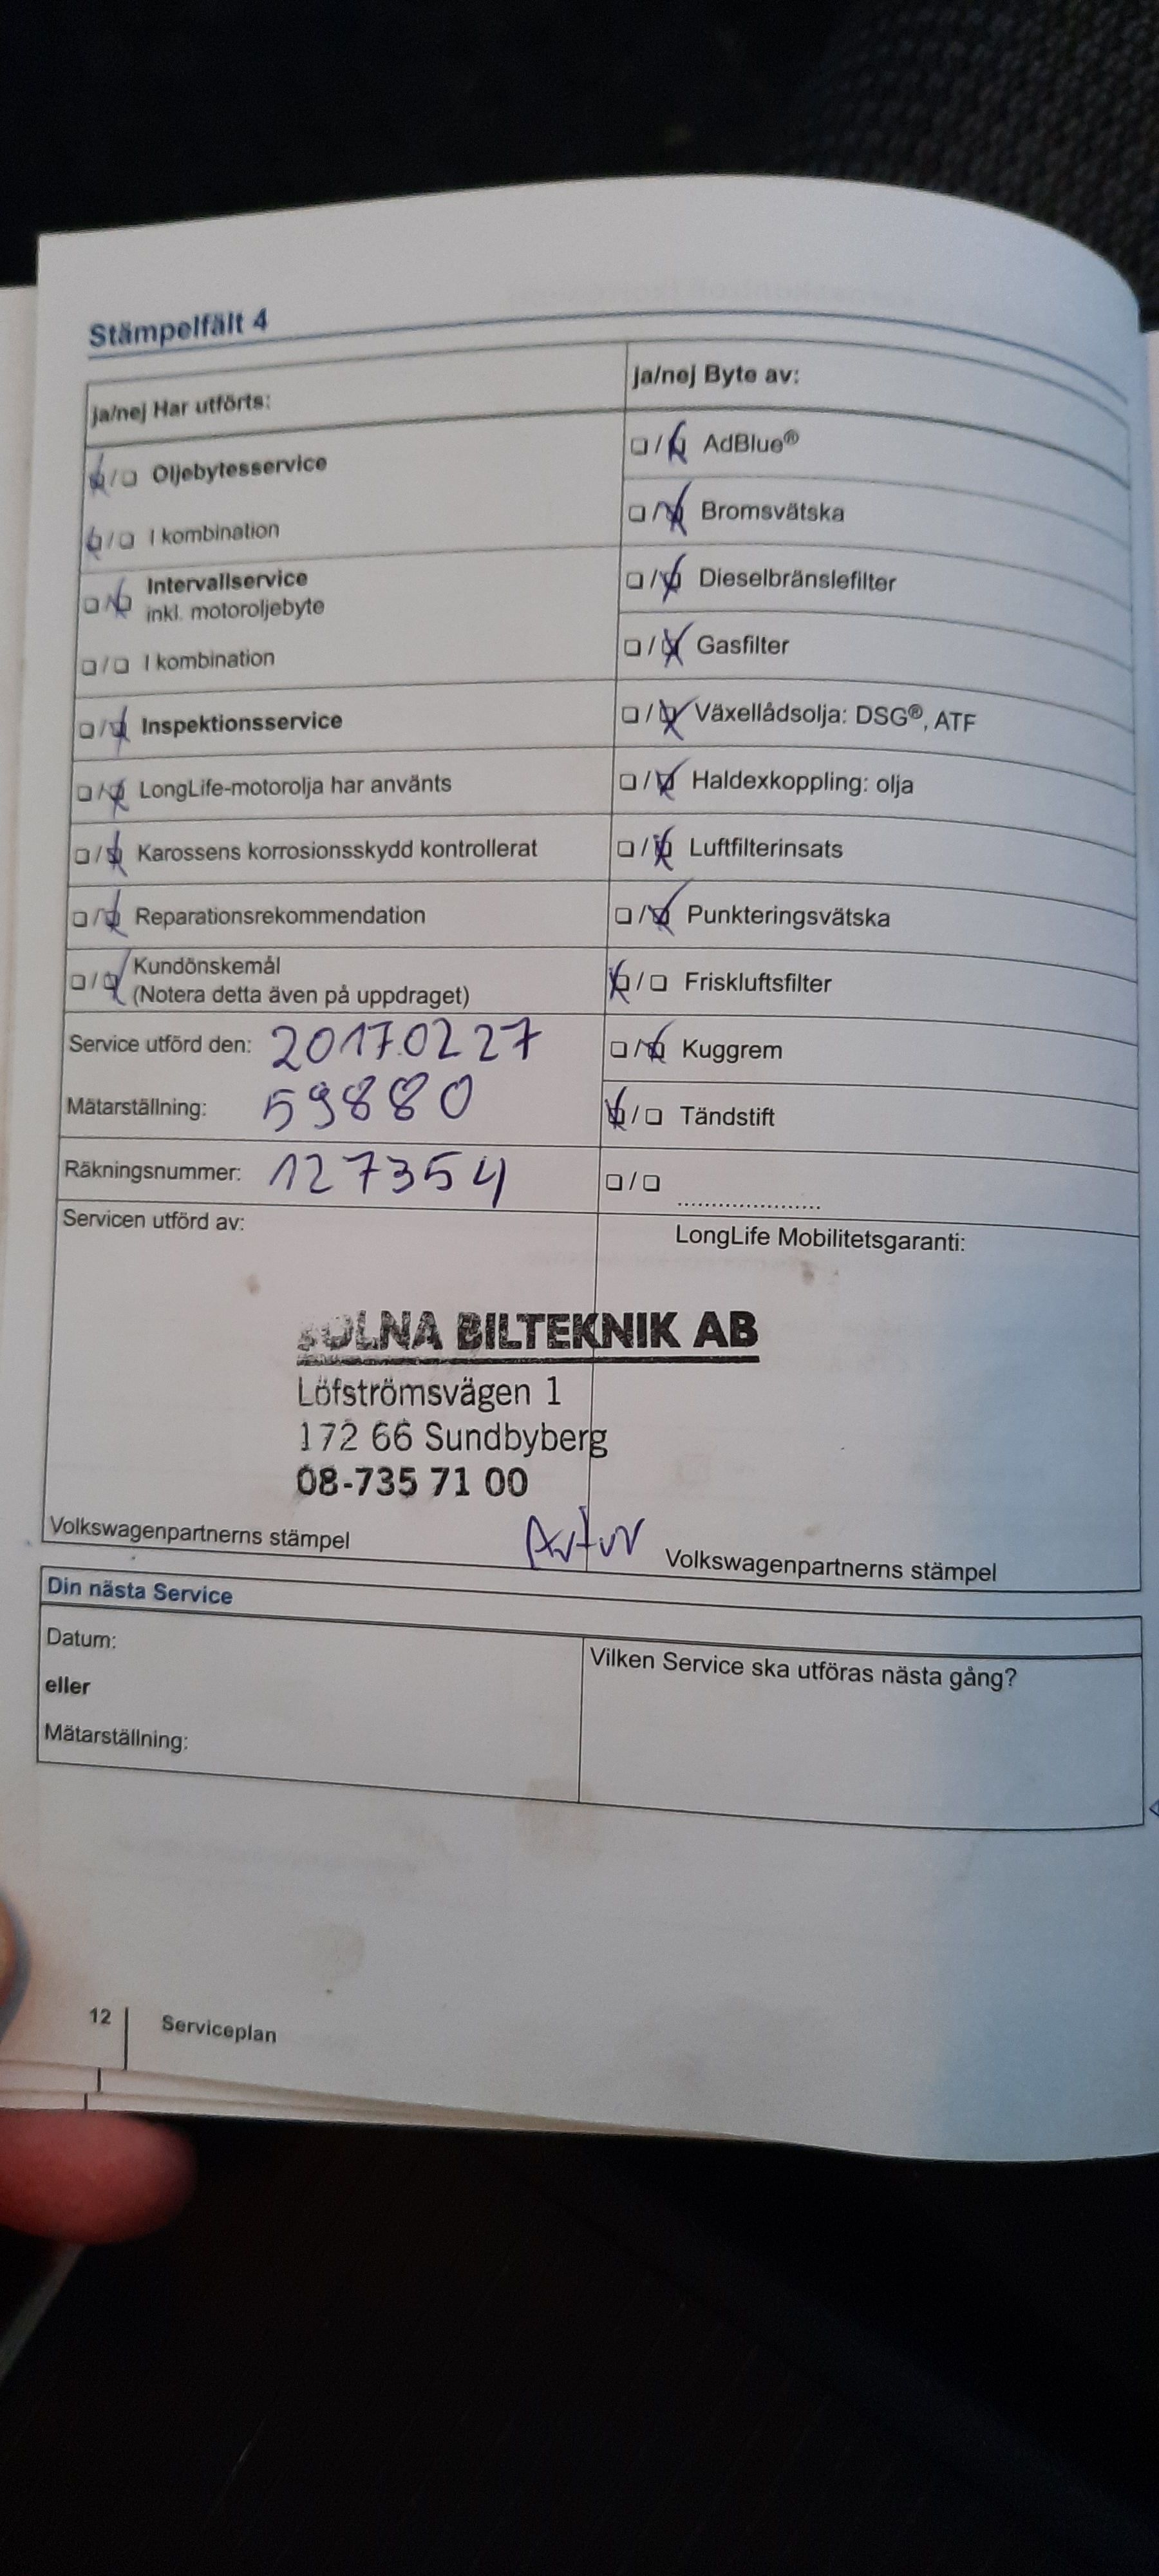 Stämpelfält 4
ja/nej Har utförts:
☒/☐ Oljebytesservice
☒/☐ I kombination
☐/☒ Intervallservice
inkl. motoroljebyte
☐/☐ I kombination
☐/☒ Inspektionsservice
☐/☒ LongLife-motorolja har använts
☐/☒ Karossens korrosionsskydd kontrollerat
☐/☒ Reparationsrekommendation
☐/☒ Kundönskemål
(Notera detta även på uppdraget)
Service utförd den: 2017.02 27
Mätarställning: 59880
Räkningsnummer: 127354
ja/nej Byte av:
☐/☒ AdBlue®
☐/☒ Bromsvätska
☐/☒ Dieselbränslefilter
☐/☒ Gasfilter
☐/☒ Växellådsolja: DSG®, ATF
☐/☒ Haldexkoppling: olja
☐/☒ Luftfilterinsats
☐/☒ Punkteringsvätska
☒/☐ Friskluftsfilter
☐/☒ Kuggrem
☒/☐ Tändstift
☐/☐ .....................
Servicen utförd av:
LongLife Mobilitetsgaranti:
SOLNA BILTEKNIK AB
Löfströmsvägen 1
172 66 Sundbyberg
08-735 71 00
Artur
Volkswagenpartnerns stämpel
Volkswagenpartnerns stämpel
Din nästa Service
Datum:
eller
Mätarställning:
Vilken Service ska utföras nästa gång?
12 Serviceplan